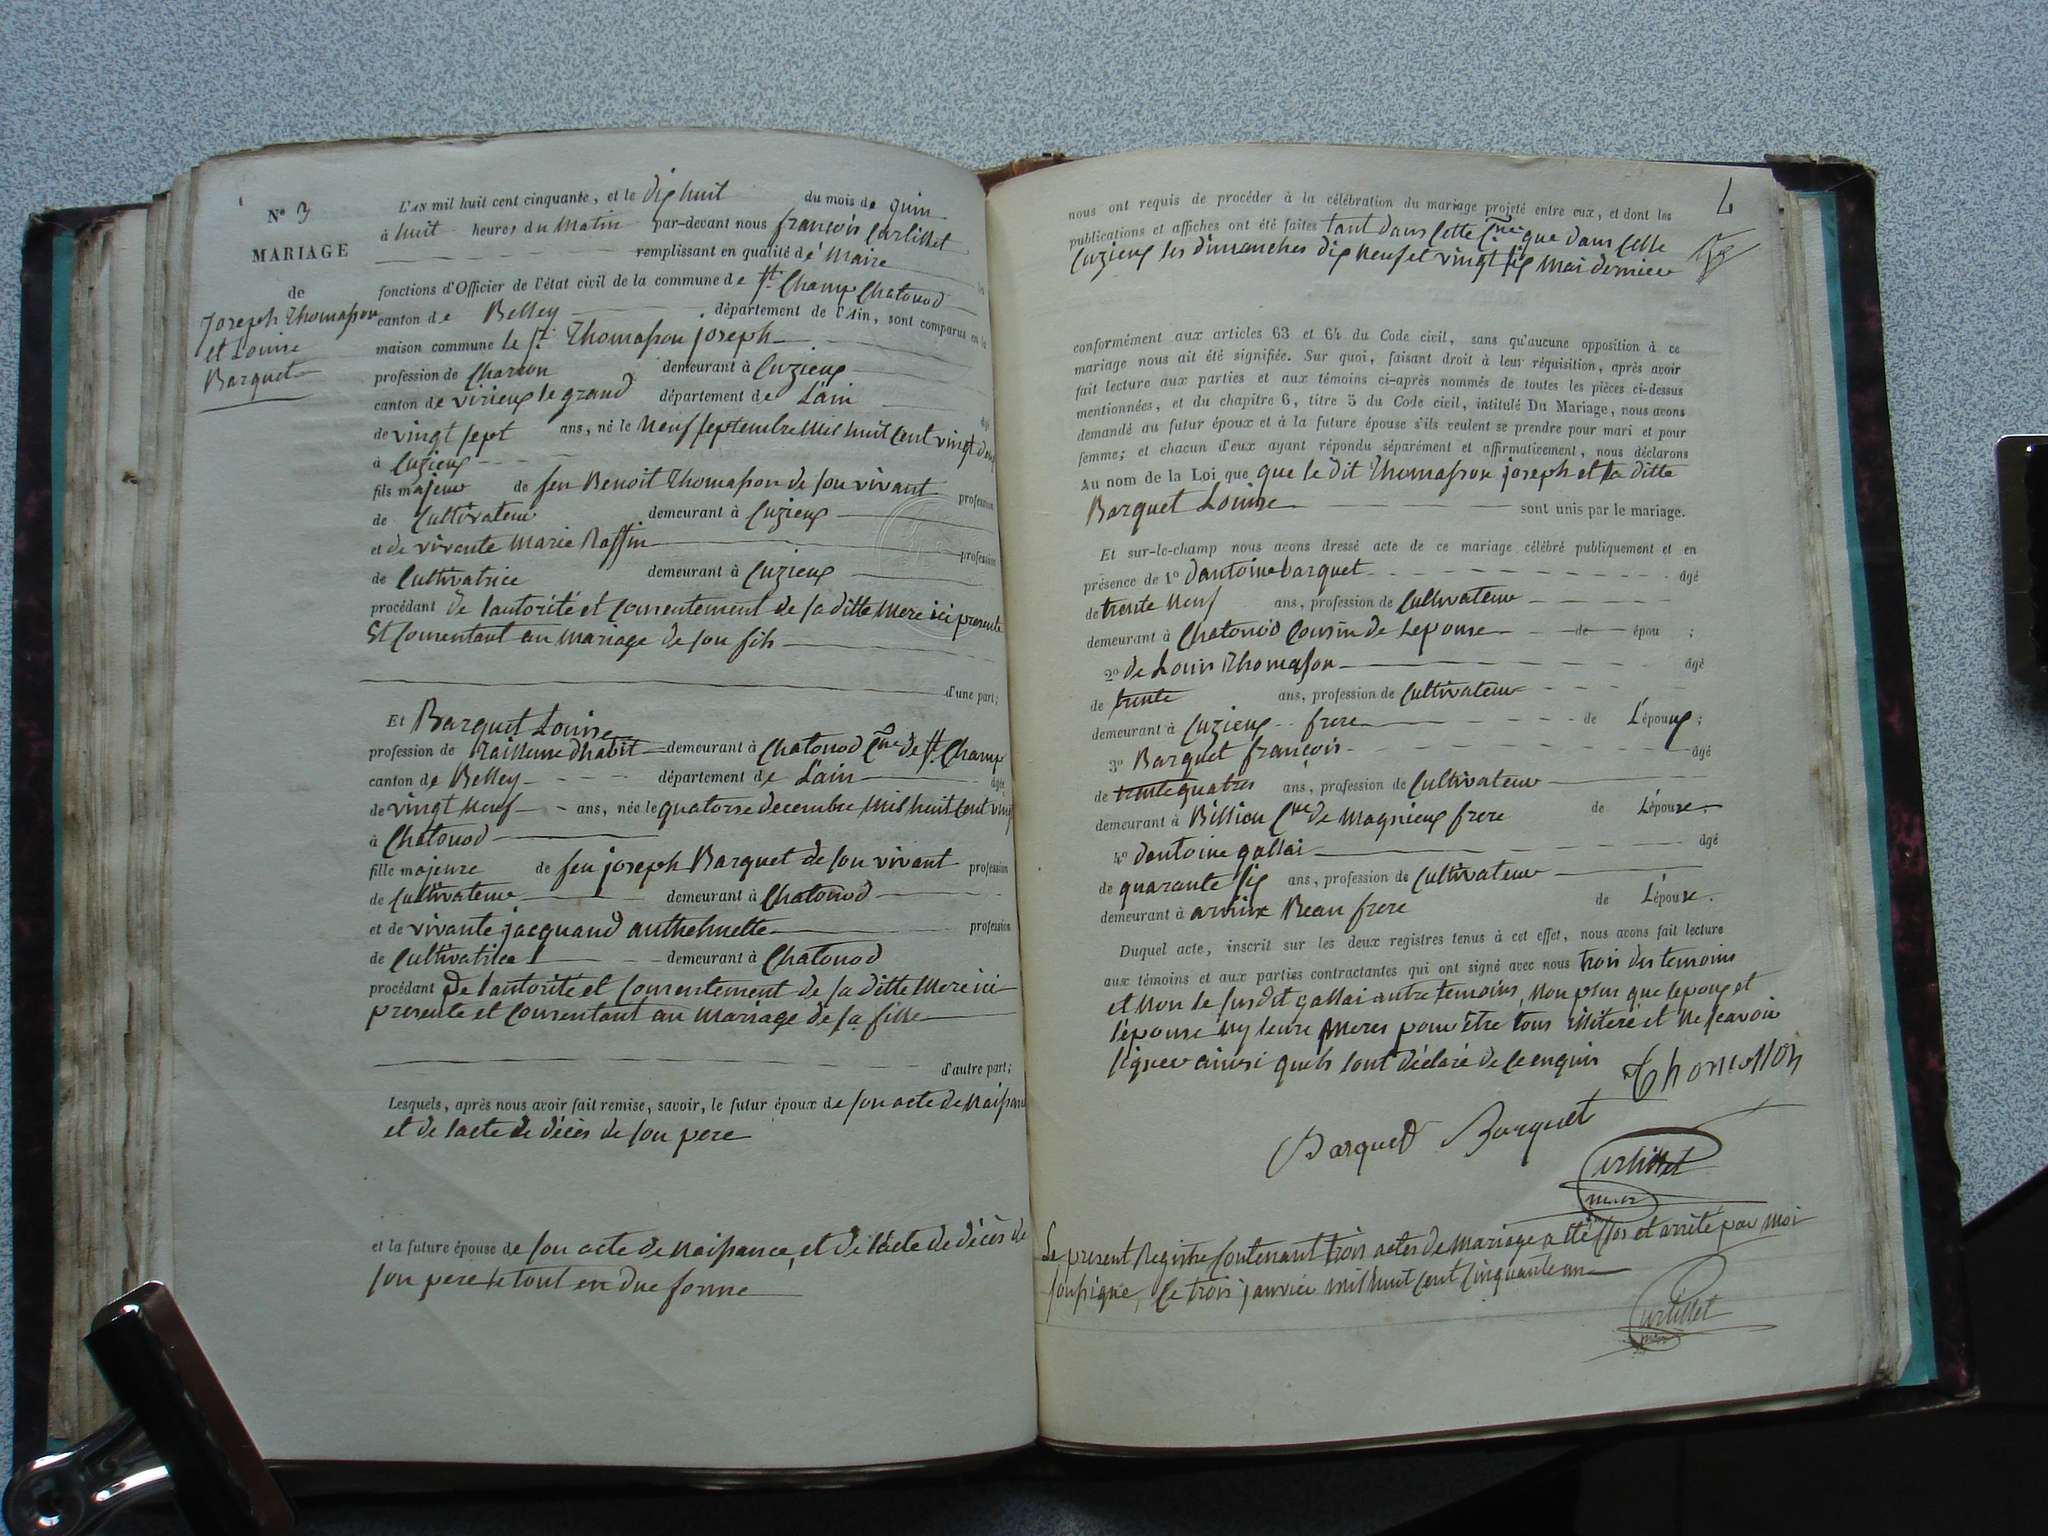 N° 3
MARIAGE
de
Joseph Thomasson
et Louise
Barquet
L'AN mil huit cent cinquante, et le dix huit du mois de juin
à huit heures du Matin par-devant nous françois Curlillet
remplissant en qualité de Maire les
fonctions d'Officier de l'état civil de la commune de St Champ Chatonod
canton de Belley département de l'Ain, sont comparus en la
maison commune le Sr. Thomasson joseph
profession de Charron demeurant à Cuzieux
canton de virieux le grand département de L'ain
âgé
de vingt sept ans, né le Neuf septembre Mil huit Cent vingt deux
à Cuzieux
fils majeur de feu Benoit Thomasson de son vivant profession
de Cultivateur demeurant à Cuzieux
et de vivante Marie Raffin profession
de Cultivatrice demeurant à Cuzieux
procédant de l'autorité et Consentement de sa ditte Mere ici presente
Et Consentant au Mariage de son fils
d'une part;
Et Barquet Louise
profession de Tailleuse d'habit demeurant à Chatonod Cne de St Champ
canton de Belley département de L'ain âgée
de vingt Neuf ans, née le quatorse decembre Mil huit Cent vingt
à Chatonod
fille majeure de feu joseph Barquet de son vivant profession
de Cultivateur demeurant à Chatonod
et de vivante jacquand anthelmette profession
de Cultivatrice demeurant à Chatonod
procédant De l'autorité et Consentement de sa ditte Mere ici
presente et Consentant au Mariage de sa fille
d'autre part;
Lesquels, après nous avoir fait remise, savoir, le futur époux de son acte de Naissance
et de l'acte de décès de son pere
et la future épouse de son acte de Naissance, et de l'acte de décès de
son pere le tout en due forme
4
nous ont requis de procéder à la célébration du mariage projeté entre eux, et dont les
publications et affiches ont été faites tant dans Cette Cne que dans Celle
Cuzieux les dimanches dix neuf et vingt six Mai dernier
conformément aux articles 63 et 64 du Code civil, sans qu'aucune opposition à ce
mariage nous ait été signifiée. Sur quoi, faisant droit à leur réquisition, après avoir
fait lecture aux parties et aux témoins ci-après nommés de toutes les pièces ci-dessus
mentionnées, et du chapitre 6, titre 5 du Code civil, intitulé Du Mariage, nous avons
demandé au futur époux et à la future épouse s'ils veulent se prendre pour mari et pour
femme; et chacun d'eux ayant répondu séparément et affirmativement, nous déclarons
Au nom de la Loi que que le dit Thomasson joseph et la ditte
Barquet Louise sont unis par le mariage.
Et sur-le-champ nous avons dressé acte de ce mariage célébré publiquement et en
présence de 1° d'antoine barquet âgé
de trente Neuf ans, profession de Cultivateur
demeurant à Chatonod Cousin de Lepouse de épou ;
2° de Louis Thomasson âgé
de trente ans, profession de Cultivateur
demeurant à Cuzieux frere de L'époux ;
3° Barquet françois âgé
de trente quatres ans, profession de Cultivateur
demeurant à Billieu Cne de Magnieux frere de L'épouse.
4° d'antoine gallai âgé
de quarante six ans, profession de Cultivateur
demeurant à Beau frere de L'épouse.
Duquel acte, inscrit sur les deux registres tenus à cet effet, nous avons fait lecture
aux témoins et aux parties contractantes qui ont signé avec nous trois des temoins
et Non le susdit gallai autre temoins, Non plus que lepoux et
l'épouse Ny leurs Meres pour être tous illiteré et Ne scavoir
signer ainsi quils l'ont déclaré de Ce enquis
Thomasson
Barquet Barquet
Curlillet
maire
Le present Registre Contenant trois actes de Mariage a été Clos et arrêté par Moi
soussigné, Ce trois janvier mil huit cent Cinquante un
Curlillet
maire